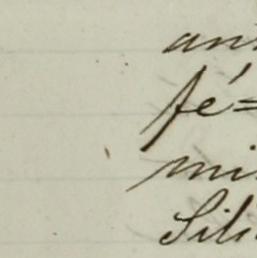 an
fé=
mi
Sil